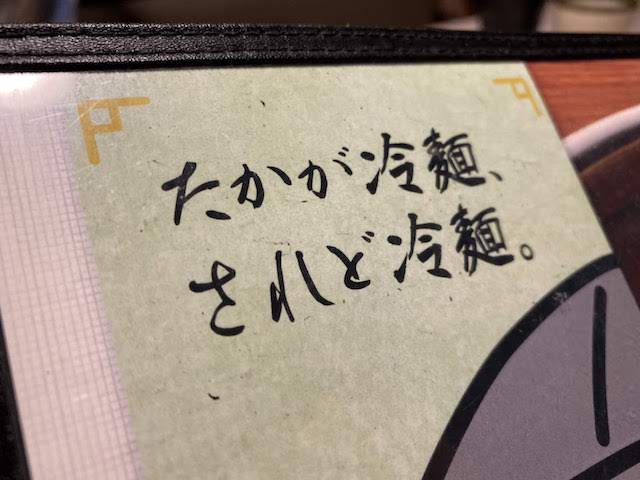 たかが冷麺、
されど冷麺。